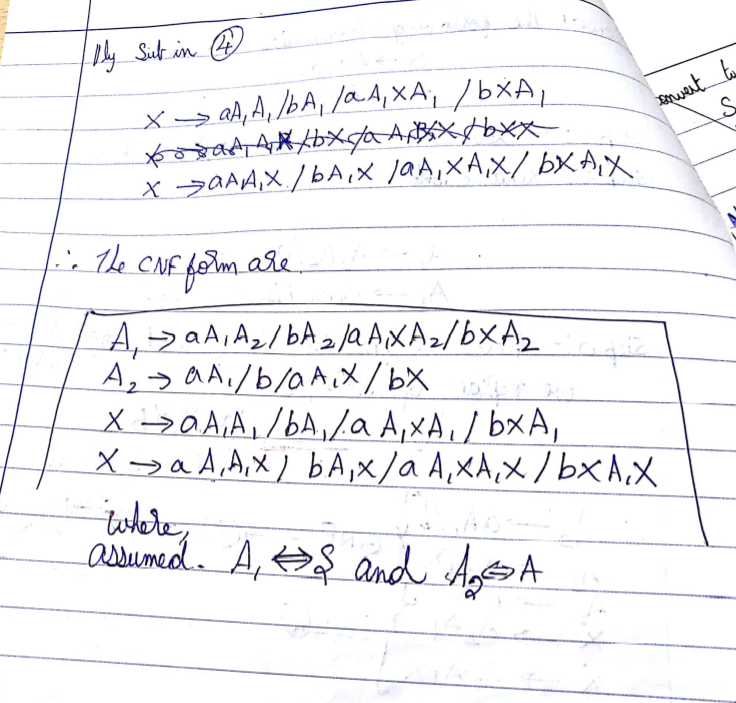 |||ly Sub in ④
X → aA₁A₁ /bA₁ /aA₁XA₁ /bXA₁
X → aA₁A₁X / bA₁X /aA₁XA₁X / bXA₁X
∴ The CNF form are
A₁ → aA₁A₂ / bA₂ /aA₁XA₂ / bXA₂
A₂ → aA₁ / b / aA₁X / bX
X → aA₁A₁ / bA₁ / aA₁XA₁ / bXA₁
X → aA₁A₁X / bA₁X / aA₁XA₁X / bXA₁X
where,
assumed. A₁ ⇔ S and A₂ ⇔ A